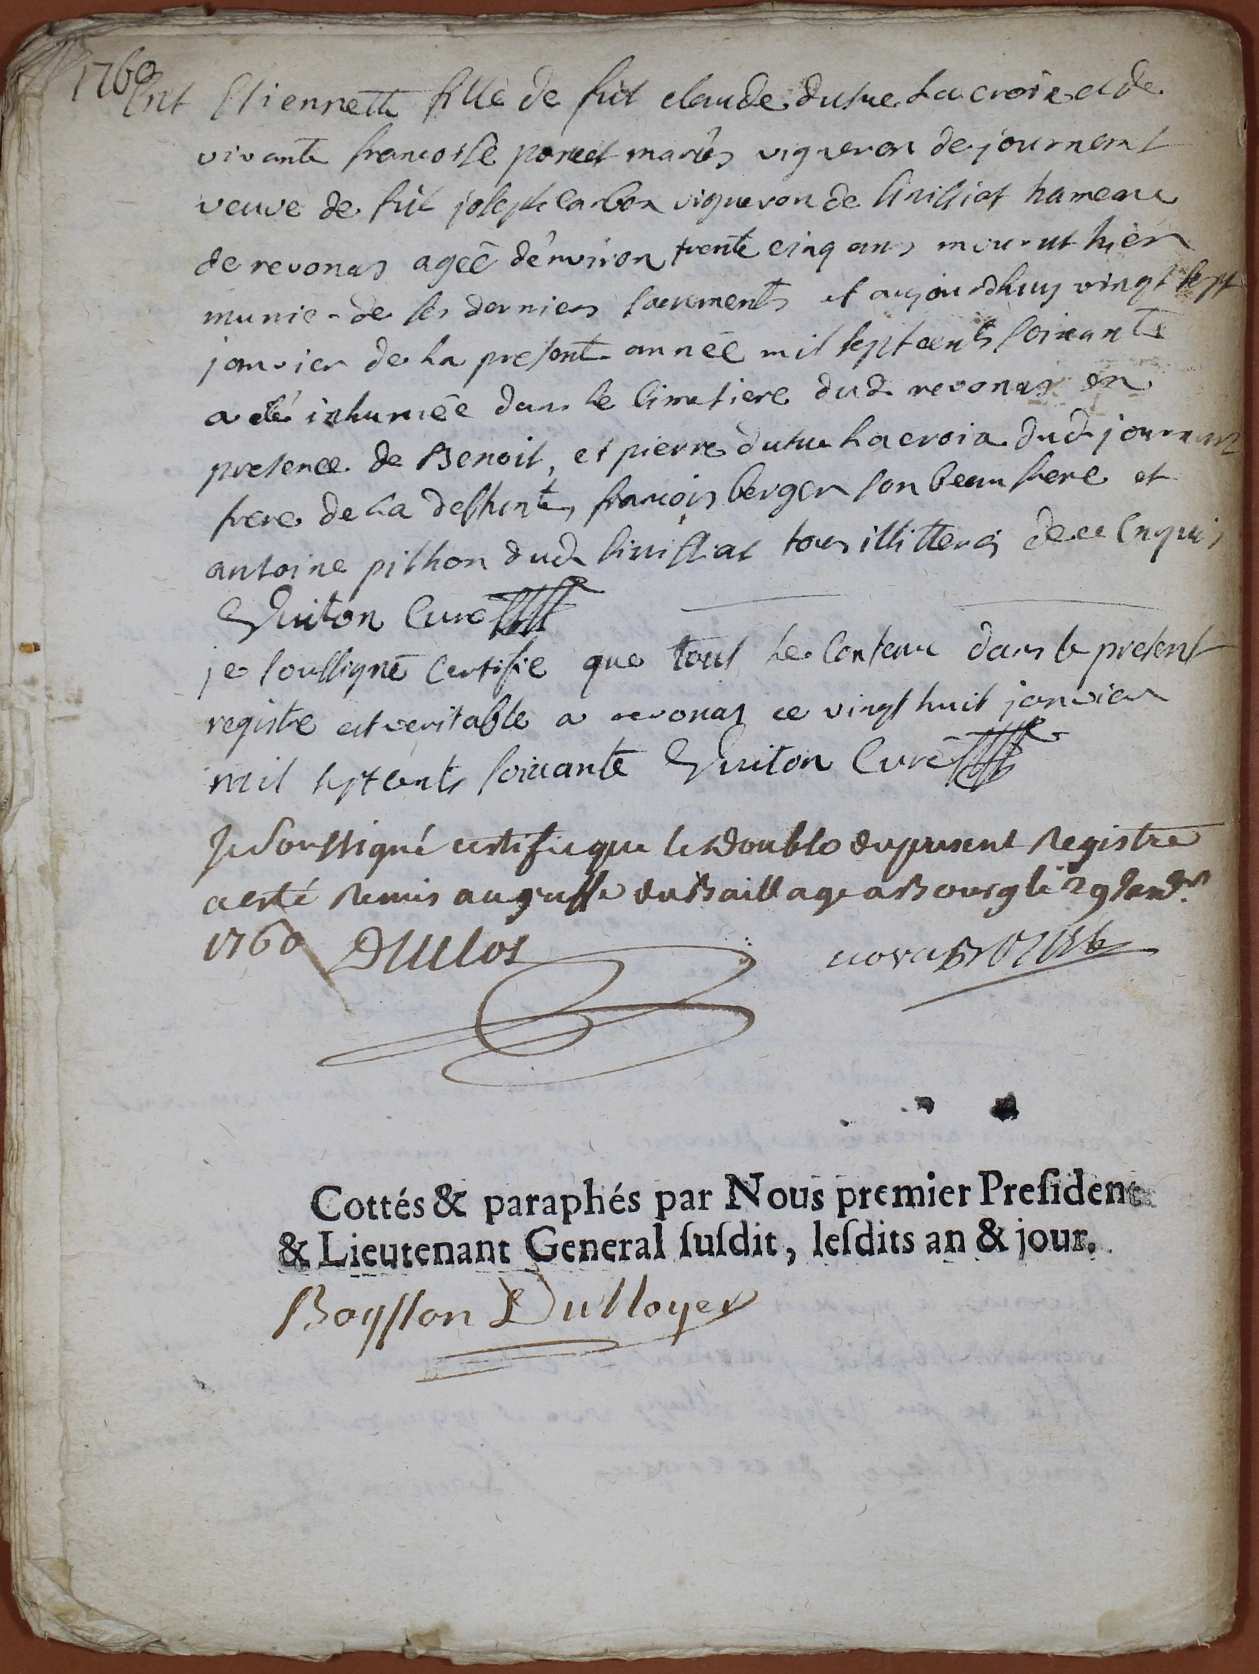 1760
Ent Etiennette fille de fut claude dutue Lacroix et de
vivante francoise ponet mariés vigneron de journent
veuve de fut joseph carbon vigneron de Sinissiat hameau
de revonas agée d'environ trente cinq ans mourut hier
munie de ses derniers sacrements et aujourdhuy vingt sept
janvier de la presente année mil sept cents soixante
a été inhumée dans le Cimetiere dud. revonas en
presence de Benoit, et pierre dutue Lacroix dud journent
frere de la deffunte, francois berger son beau frere et
antoine pithon dud Sinissiat tous illitterés de ce Enquis
Guiton Curé
je soussigné Certifie que tout le Contenu dans le present
registre est veritable a revonas ce vingt huit janvier
mil sept cents soixante Guiton Curé
Je Soussigné certifie que le double du present Registre
a esté Remis au greffe du Baillage a Bourg le 29 Janv.er
1760 Duclos
Cottés & paraphés par Nous premier Preſident
& Lieutenant General ſuſdit, leſdits an & jour.
Boysson Dunoyer